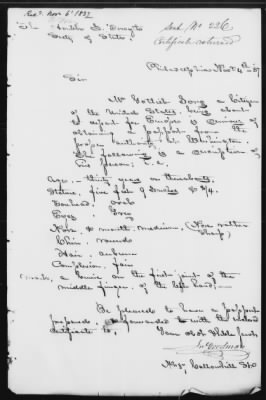 Recd. Nov 6th 1837
Sent No 226
Certificate returned
Secty of State
Philadelphia Nov 4th 37
Sir
Mr Gottlieb a Citizen
of the United States, being about
to depart for Europe is desirous of
obtaining a passport from the
proper authority at Washington.
The following is a description of
his person.
Age - thirty years or thereabouts.
Stature, five feet 9 Inches & 3/4.
Forehead, oval
Eyes, Grey
Nose & mouth, medium, (Nose rather
sharp)
Chin, round
Hair, auburn
Complexion, fair
mark, a on the first joint of the
middle finger of the left hand.
Be pleased to have a passport
prepared, & forwarded to with the
certificate to,
Your obt Hble Servt
Goodman
No Callowhill St